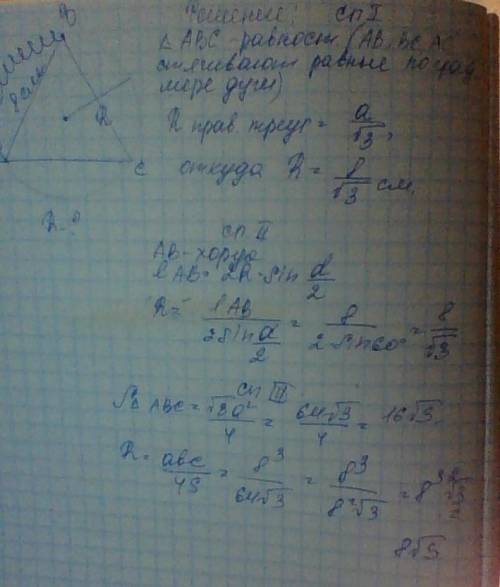 Решение: сп I
B
△ ABC - равност (AB, BC, AC
стягивают равные по град
мере дуги)
8 см
R
R прав. треуг = a/√3,
C
откуда R = 8/√3 см.
R - ?
сп II
AB - хорда
l AB = 2R · sin α/2
R = l AB / 2 sin α/2 = 8 / 2 sin 60° = 8/√3
сп III
S△ ABC = √3a²/4 = 64√3/4 = 16√3
R = abc/4S = 8³/64√3 = 8³/8²√3 =
8√3